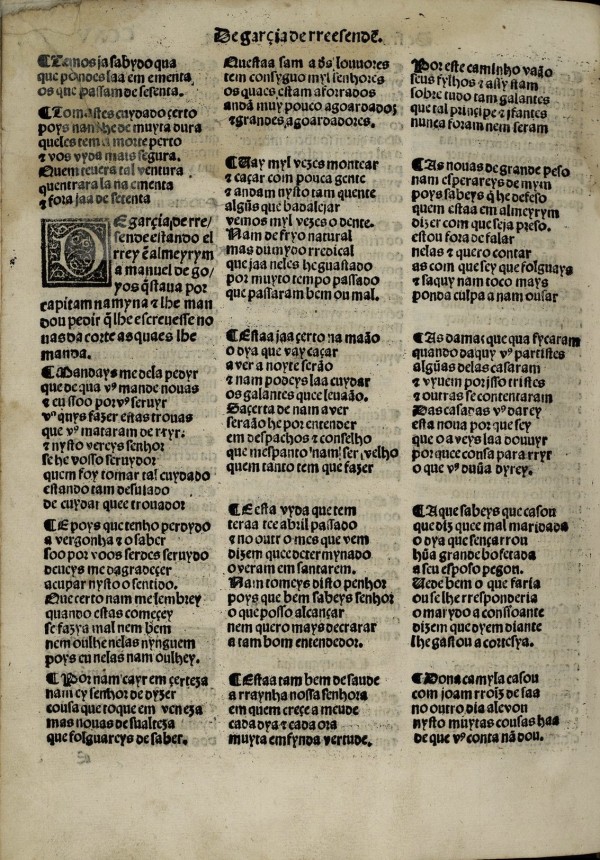 De garçia de rreesendẽ.
¶Temos ja sabydo qua
que põndes laa em ementa
os que passam de sesenta.
¶Tomastes cuydado çerto
poys nam lhe de muyta dura
queles tem a morte perto
⁊ vos vyda mais segura.
Quem teuera tal ventura
quentrara la na ementa
⁊ fora jaa de setenta
De garçia, de rre/
sende estando el
rrey ẽ almeyrym
a manuel de go/
yos q̃ staua por
capitam na myna ⁊ lhe man
dou pedir q̃ lhe escreuesse no
uas da corte as quaes lhe
manda.
¶Mandays me de la pedyr
que de qua vᵒ mande nouas
⁊ eu ssoo por vᵒ seruyr
vᵒ quys fazer estas trouas
que vᵒ mataram de rryr:
⁊ nysto vereys senhor
se he vosso seruydor
quem foy tomar tal cuydado
estando tam desuiado
de cuydar quee trouador
¶E poys que tenho perdydo
a vergonha ⁊ o saber
soo por voos serdes seruydo
deueys me dagradeçer
acupar nysto o sentido.
Que certo nam me lembrey
quando estas começey
se fazya mal nem bem
nem oulhe nelas nynguem
poys eu nelas nam oulhey.
¶Por nam cayr em çerteza
nam ey senhor de dyzer
cousa que toque em veneza
mas nouas de sualteza
que folguareys de saber.
Questaa sam a ds̃ louuores
tem consyguo myl senhores
os quaes estam aforrados
andã muy pouco agoardados
⁊ grandes agoardadores.
¶Vay myl vezes montear
⁊ caçar com pouca gente
⁊ andam nysto tam quente
algũs que badalejar
vemos myl vezes o dente.
Nam de fryo natural
mas dumydo rredical
que jaa neles he guastado
por muyto tempo passado
que passaram bem ou mal.
¶Estaa jaa çerto na maão
o dya que vay caçar
a ver a noyte seraão
⁊ nam podeys laa cuydar
os galantes quee leuaão.
Daçerta de nam aver
seraão he por entender
em despachos ⁊ conselho
que mespanto nam ser velho
quem tanto tem que fazer
¶E esta vyda que tem
teraa tee abril passado
⁊ no outro mes que vem
dizem quee determynado
o veram em santarem.
Nam tomeys disto penhor
poys que bem sabeys senhor
o que posso alcançar
nem quero mays decrarar
a tam bom entendedor.
¶Estaa tam bem de saude
a rraynha nossa senhora
em quem creçe a meude
cada dya ⁊ cada ora
muyta emfynda vertude.
Por este caminho vaão
seus fylhos ⁊ assy stam
sobre tudo tam galantes
que tal prinçipe ⁊ jfantes
nunca foram nem seram
¶As nouas de grande peso
nam esperareys de mym
poys sabeys q̃ he defeso
quem estaa em almeyrym
dizer com que seja preso.
estou fora de falar
nelas ⁊ quero contar
as com que sey que folguays
⁊ saquy nam toco mays
ponda culpa a nam ousar
¶As damas que qua fycaram
quando daquy vᵒ partistes
algũas delas casaram
⁊ vyuem por isso tristes
⁊ outras se contentaram
Das casadas vᵒ darey
esta noua por que sey
que o aveys laa douuyr
por quee consa para rryr
o que vᵒ duũa dyrey.
¶A que sabeys que casou
que diz quee mal maridada
o dya que sençarrou
hũa grande bofetada
a seu esposo pegou.
Uede bem o que faria
ou se lhe rresponderia
o marydo a conssoante
dizem que dyem diante
lhe gastou a cortesya.
¶Dona camyla casou
com joam rroiz de saa
no outro dia aleuou
nysto muytas cousas haa
de que vᵒ conta nã dou.